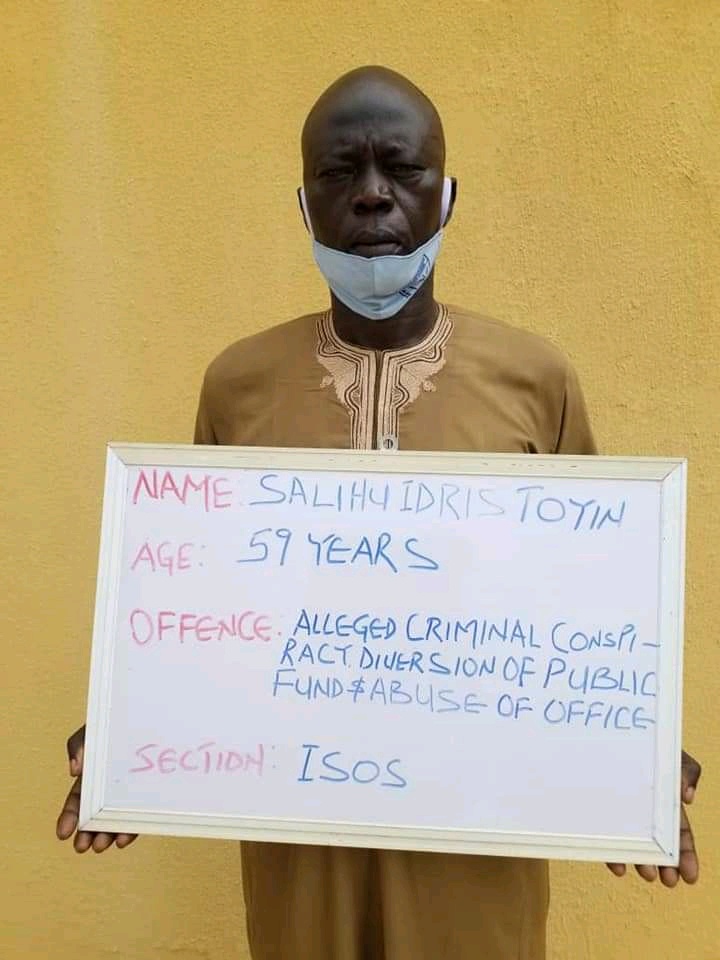 NAME: SALIHU IDRIS TOYIN
AGE: 59 YEARS
OFFENCE: ALLEGED CRIMINAL CONSPI-
RACY. DIVERSION OF PUBLIC
FUND $ ABUSE OF OFFICE
SECTION: ISOS